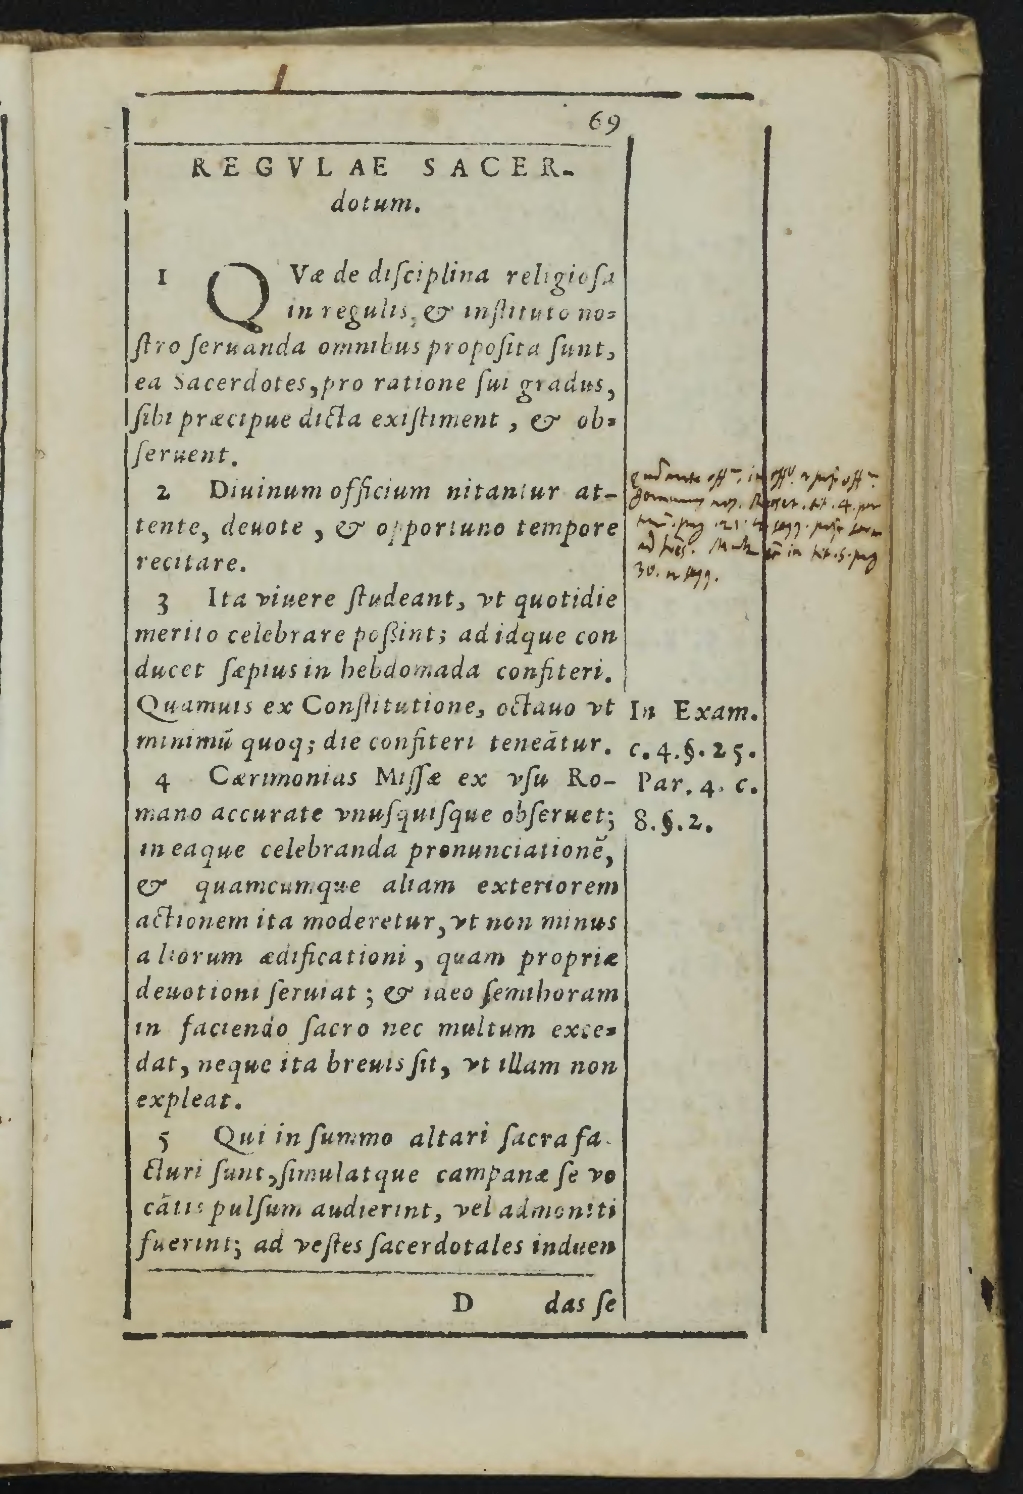 69
REGVLAE SACER-
dotum.
1 QVæ de diſciplina religioſa
in regulis, & inſtituto no=
ſtro ſeruanda omnibus propoſita ſunt,
ea Sacerdotes, pro ratione ſui gradus,
ſibi præcipue dicta exiſtiment, & ob=
ſeruent.
2 Diuinum officium nitantur at-
tente, deuote, & opportuno tempore
recitare.
3 Ita viuere ſtudeant, vt quotidie
merito celebrare poßint; ad idque con
ducet ſæpius in hebdomada confiteri.
Quamuis ex Conſtitutione, octauo vt
minimũ quoq; die confiteri teneātur.
4 Cærimonias Miſſæ ex vſu Ro-
mano accurate vnuſquiſque obſeruet;
in eaque celebranda pronunciationẽ,
& quamcumque aliam exteriorem
actionem ita moderetur, vt non minus
aliorum ædificationi, quam propriæ
deuotioni ſeruiat; & ideo ſemihoram
in faciendo ſacro nec multum exce=
dat, neque ita breuis ſit, vt illam non
expleat.
5 Qui in ſummo altari ſacra fa-
cturi ſunt, ſimulatque campanæ ſe vo
cātis pulſum audierint, vel admoniti
fuerint; ad veſtes ſacerdotales induen
D das ſe
tit. 4.
pag. 21.
in tit. 5. pag
30.
In Exam.
c. 4. §. 25.
Par. 4. c.
8. §. 2.